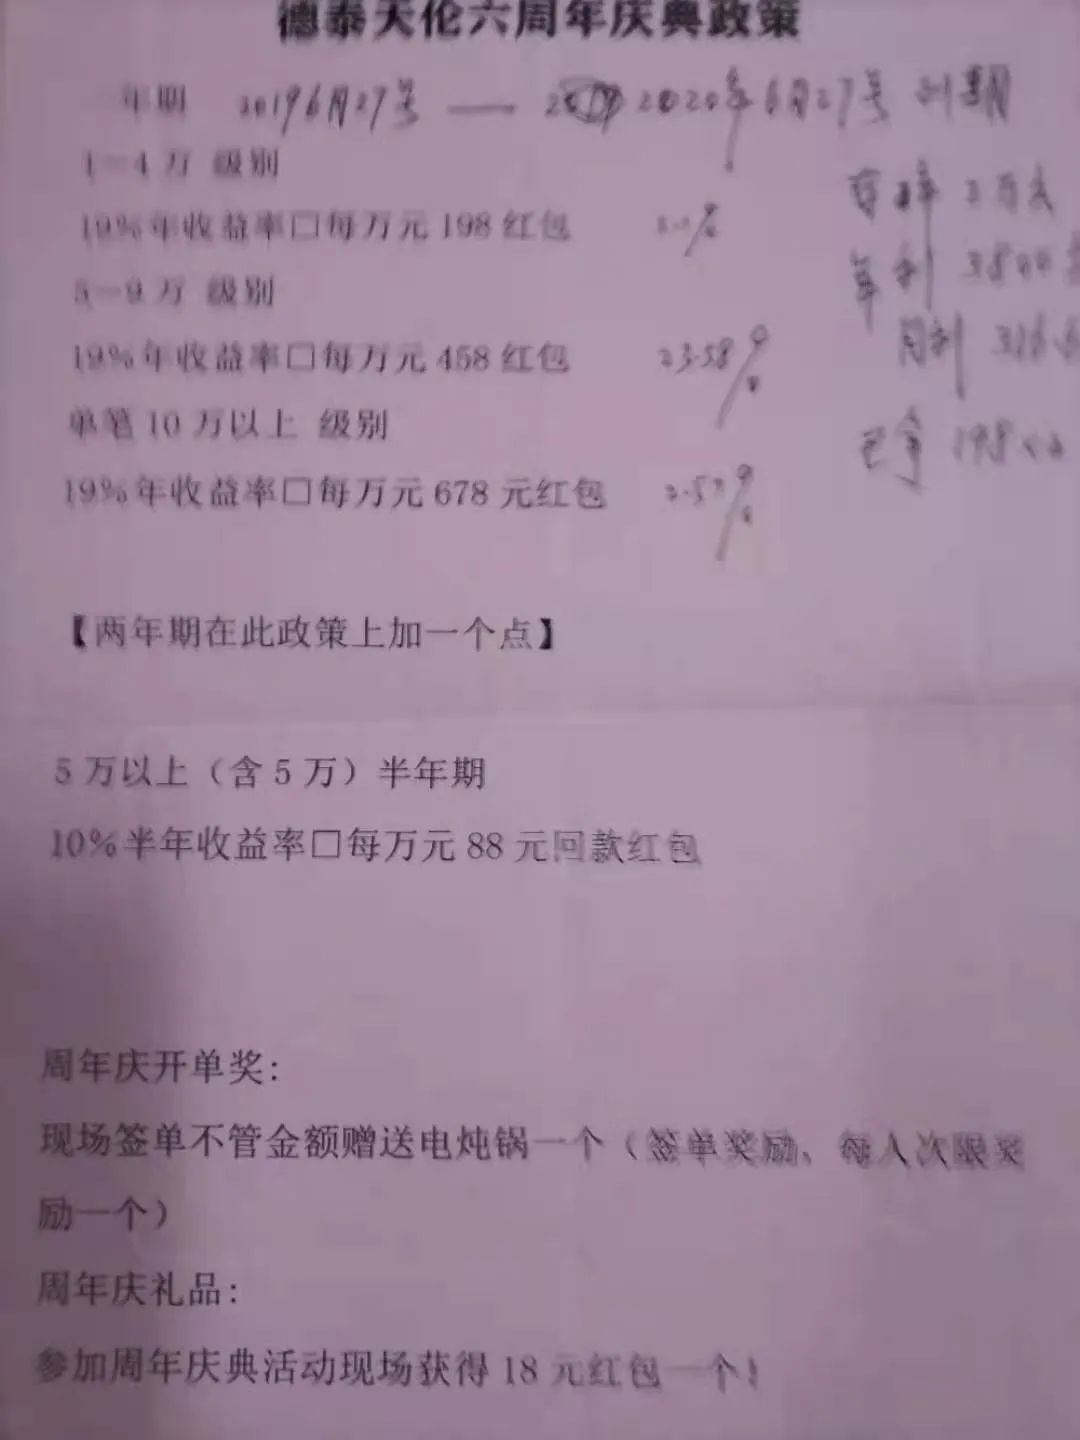 德泰天伦六周年庆典政策
一年期 2019 6月27号 — 2020年6月27号 到期
1-4万 级别
存 2万
19%年收益率□每万元198红包
年利 3800
5-9万 级别
月利 316.6
19%年收益率□每万元458红包 23.58%
单笔10万以上 级别
已 198×
19%年收益率□每万元678元红包
【两年期在此政策上加一个点】
5万以上（含5万）半年期
10%半年收益率□每万元88元回款红包
周年庆开单奖：
现场签单不管金额赠送电炖锅一个（签单奖励、每人次限奖
励一个）
周年庆礼品：
参加周年庆典活动现场获得18元红包一个！